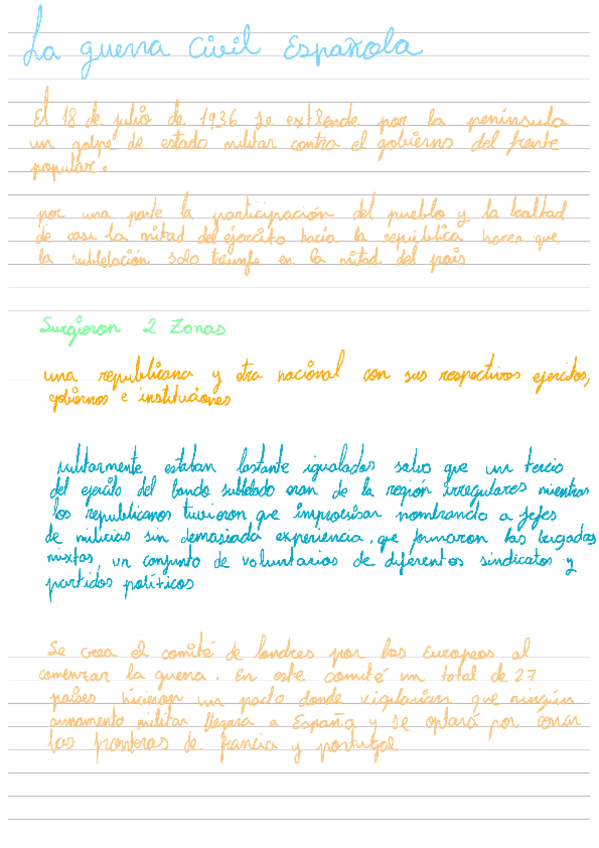 La guerra Civil Española
El 18 de julio de 1936 se extiende por la península
un golpe de estado militar contra el gobierno del frente
popular.
por una parte la participación del pueblo y la lealtad
de casi la mitad del ejercito hacia la república hacen que
la sublelación solo triunfe en la mitad del país
Surgieron 2 Zonas
una republicana y otra nacional con sus respectivos ejercitos,
gobiernos e instituciones
militarmente estaban bastante igualados salvo que un tercio
del ejercito del bando sublebado eran de la región irregulares mientras
los republicanos tuvieron que improvisar nombrando a jefes
de milicias sin demasiada experiencia, que formaron las brigadas
mixtas, un conjunto de voluntarios de diferentes sindicatos y
partidos políticos
Se crea el comité de londres por los Europeos al
comenzar la guerra. En este comité un total de 27
países hicieron un pacto donde vigilarían que ningún
armamento militar llegara a España y se optará por cerrar
las fronteras de francia y portugal